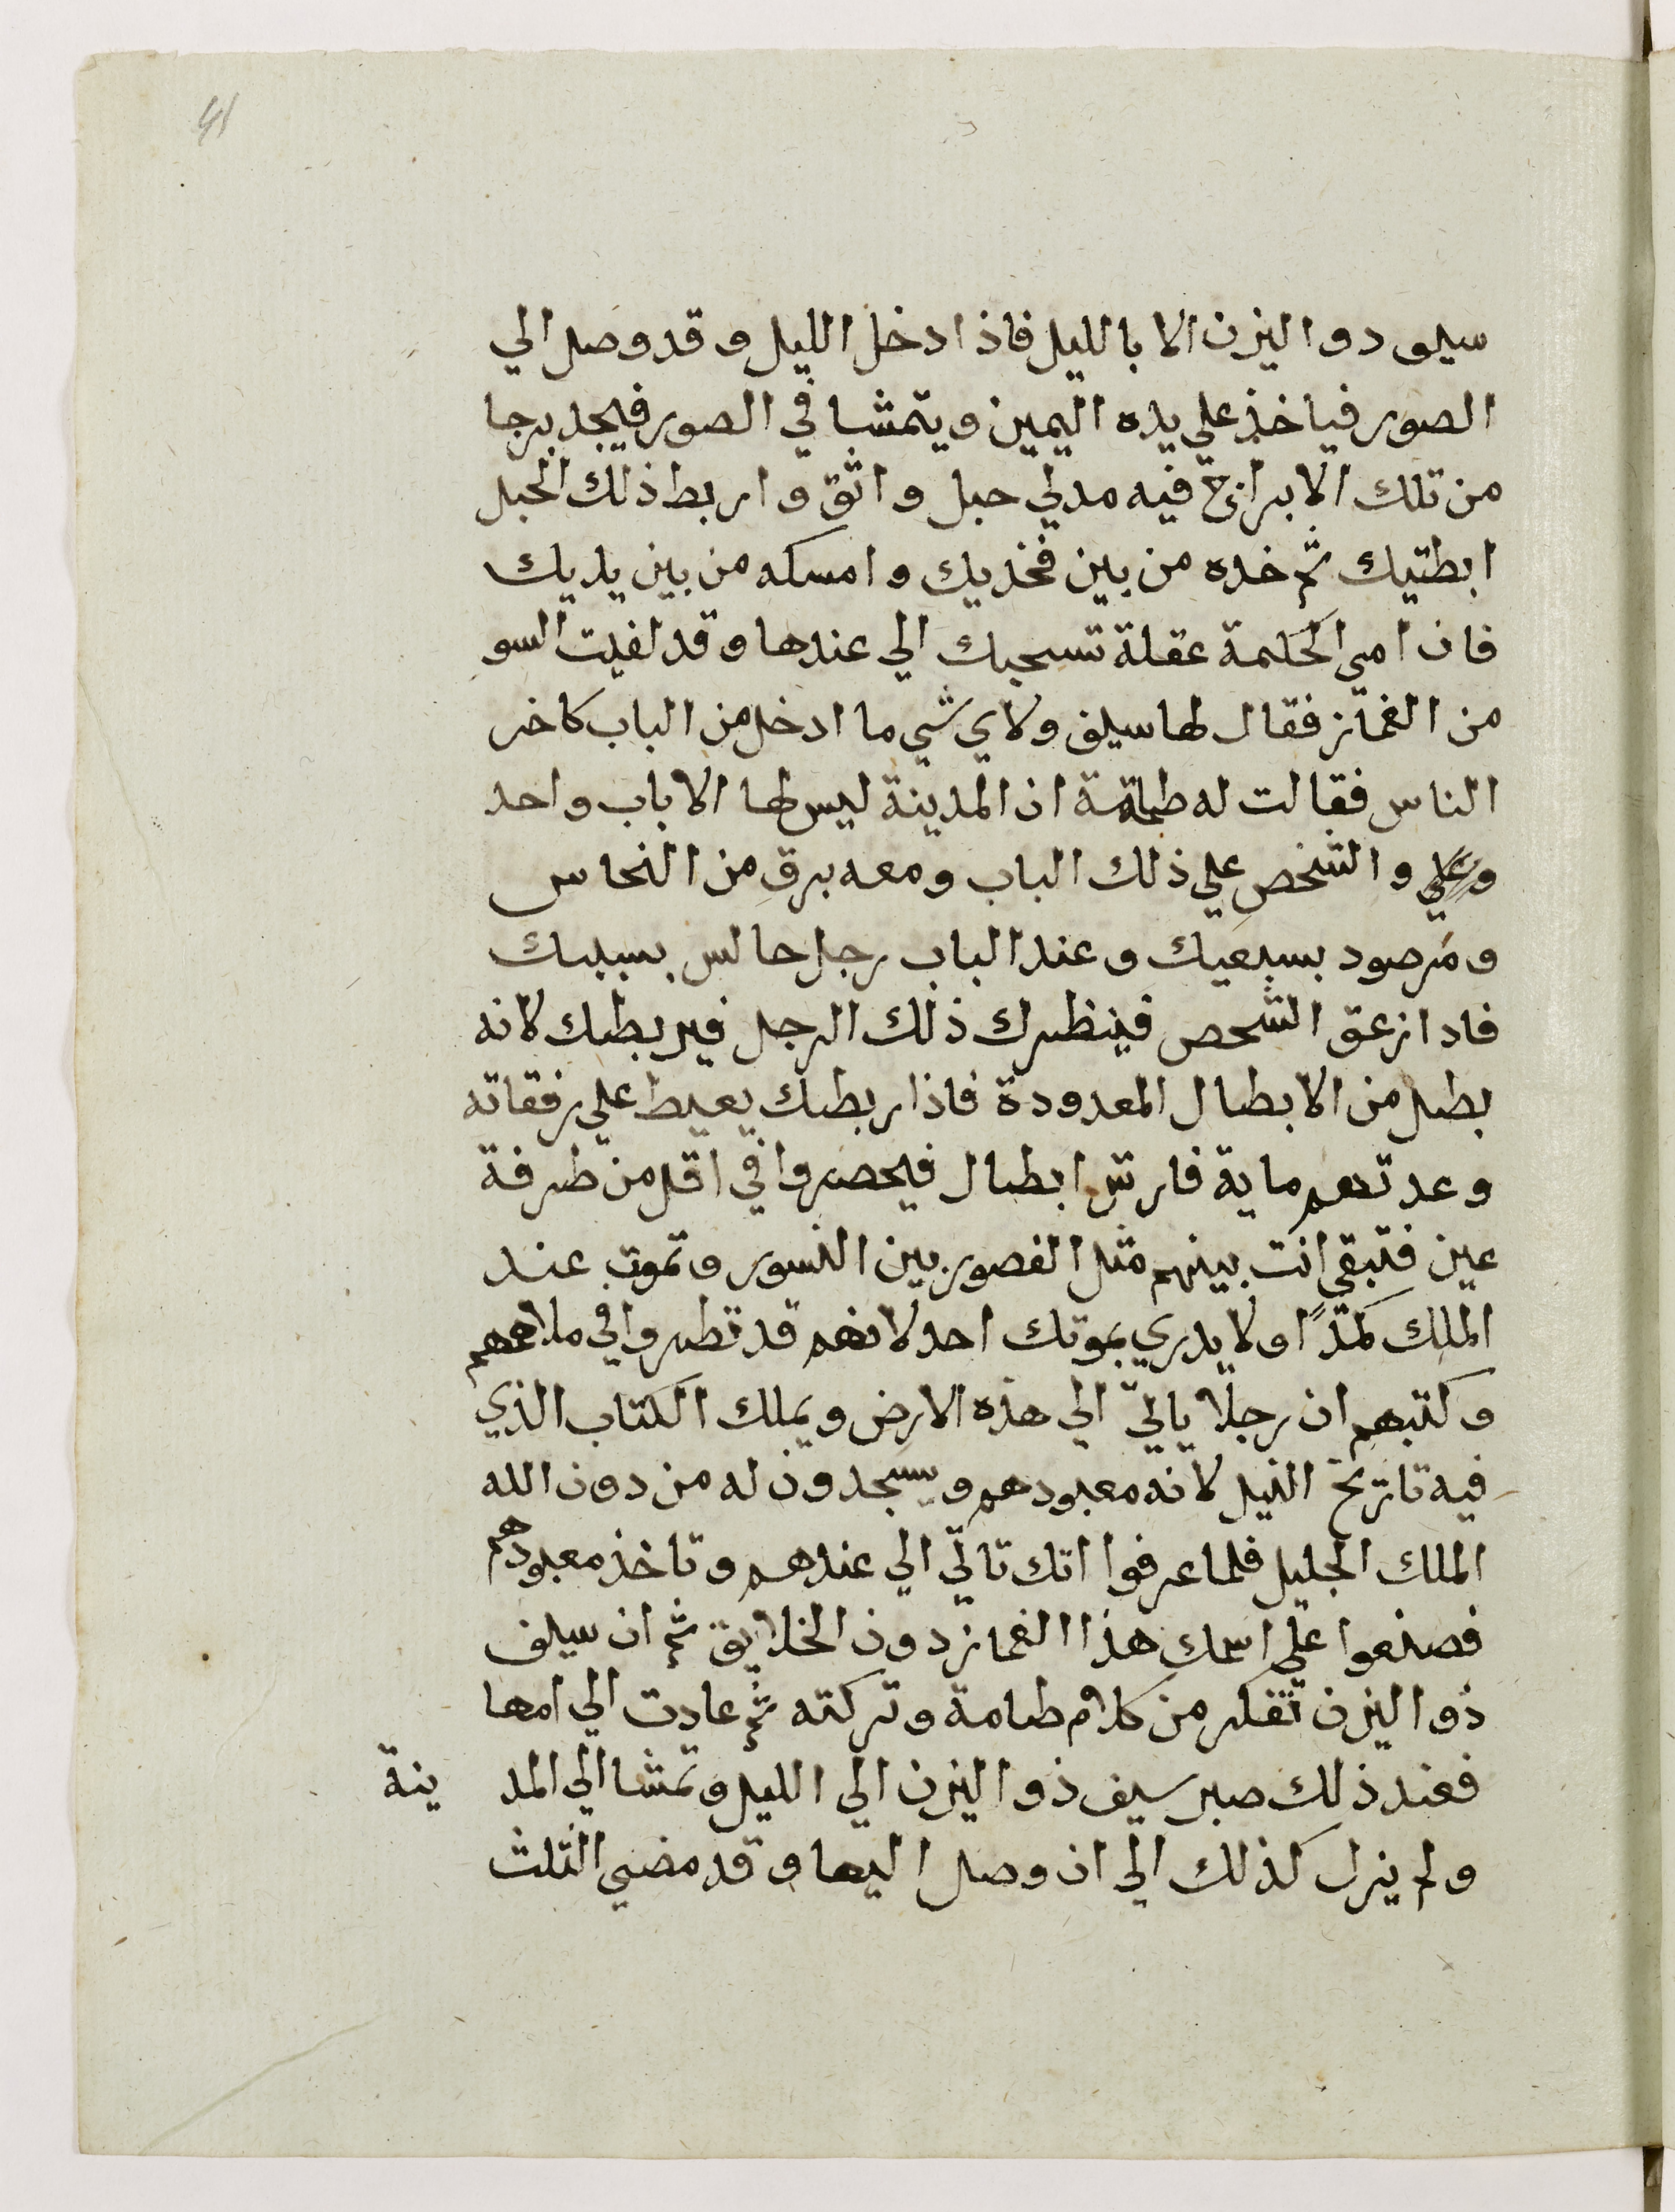 41
سيف دوا اليزن الا بالليل فاذا دخل الليل وقد وصل الي
الصور فياخذ علي يده اليمين ويتمشا في الصور فيجد برجا
من تلك الابراج فيه مدلي حبل واثق واربط ذلك الحبل
ابطتيك ثم خده من بين فخديك وامسكه من بين يديك
فان امي الحكمة عقلة تسحبك الي عندها وقد لفيت السو
من الغماز فقال لها سيف ولاي شي ما ادخل من الباب كاخر
الناس فقالت له طامة ان المدينة ليس لها الا باب واحد
وعلي والشخص علي ذلك الباب ومعه برق من النحاس
ومرصود بسبعيك وعند الباب رجل جالس بسببك
فادا زعق الشخص فينظرك ذلك الرجل فيربطك لانه
بطل من الابطال المعدودة فاذا ربطك يعيط علي رفقاته
وعدتهم ماية فارس ابطال فيحصروا في اقل من طرفة
عين فتبقي انت بينهم مثل الفصور بين النسور وتموت عند
الملك كمدًا ولا يدري بموتك احد لانهم قد نظروا في ملاحمهم
وكتبهم ان رجلا ياتي الي هذه الارض ويملك الكتاب الذي
فيه تاريخ النيل لانه معبودهم ويسجدون له من دون الله
الملك الجليل فلما عرفوا انك تاتي الي عندهم وتاخذ معبودهم
فصنعوا علي اسمك هذا الغماز دون الخلايق ثم ان سيف
ذوا اليزن تفكر من كلام طامة وتركته ثم عادت الي امها
فعند ذلك صبر سيف ذوا اليزن الي الليل وتمشا الي المد ينة
ولم يزل كذلك الي ان وصل اليها وقد مضي الثلث